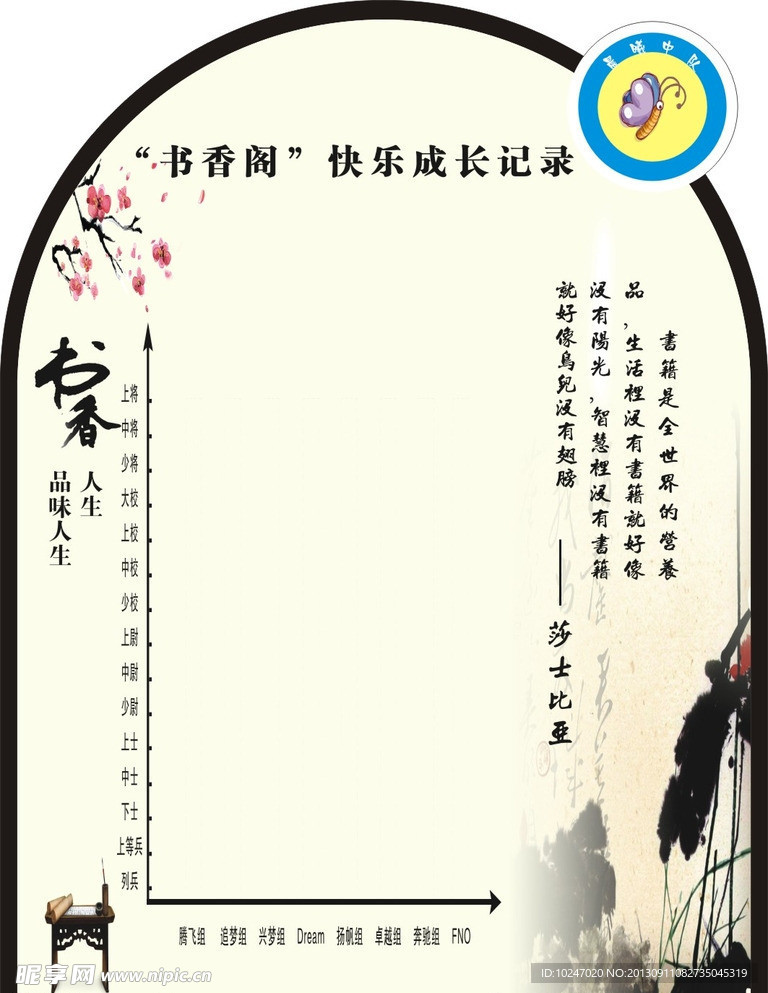 “书香阁”快乐成长记录
中队
書籍是全世界的營養
品,生活裡沒有書籍就好像
沒有陽光,智慧裡沒有書籍
就好像鳥兒沒有翅膀
——莎士比亚
书香
人生
品味人生
上将
中将
少将
大校
上校
中校
少校
上尉
中尉
少尉
上士
中士
下士
上等兵
列兵
腾飞组 追梦组 兴梦组 Dream 扬帆组 卓越组 奔驰组 FNO
昵享网 www.nipic.cn
ID:10247020 NO:20130911082735045319